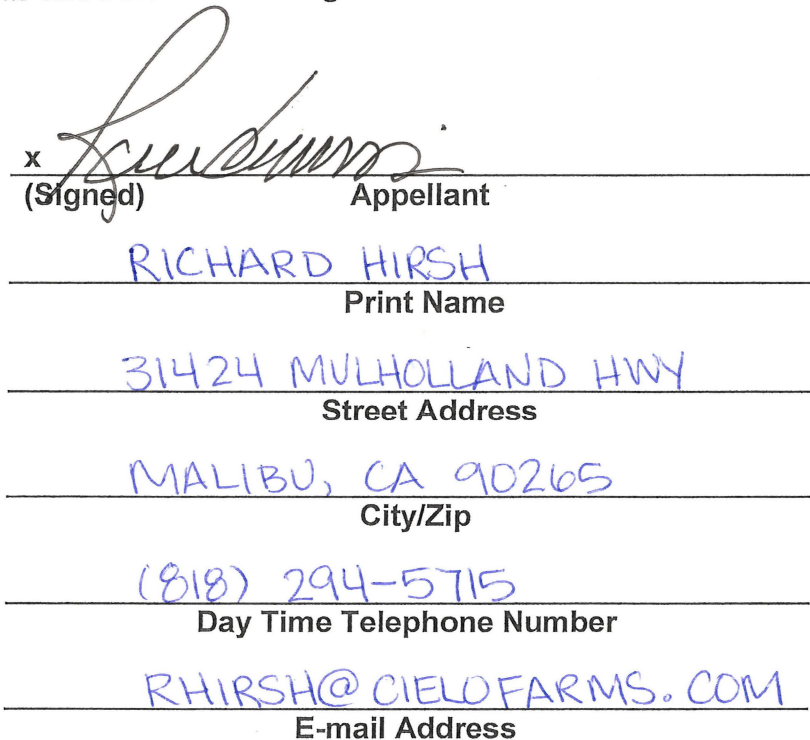 x
(Signed) Appellant
RICHARD HIRSH
Print Name
31424 MULHOLLAND HWY
Street Address
MALIBU, CA 90265
City/Zip
(818) 294-5715
Day Time Telephone Number
RHIRSH@CIELOFARMS.COM
E-mail Address